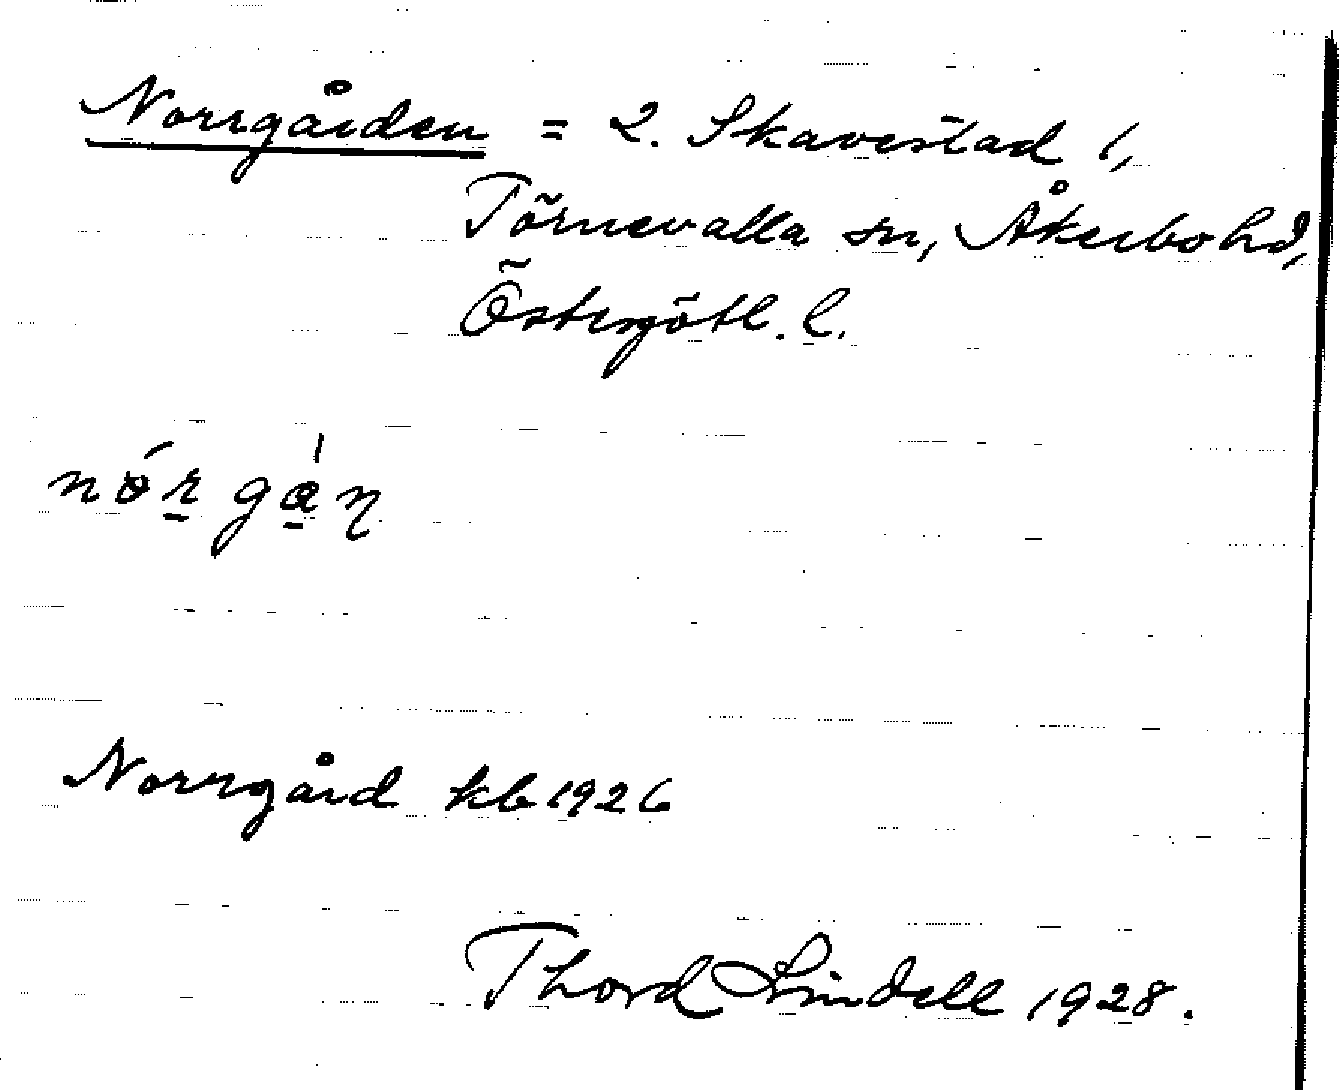 Norrgården = 2. Skavestad 1,
Törnevalla sn, Åkerbo hd,
Östergötl. l.
nór̲ ga̲̍ŋ
Norrgård kb 1926
Thord Lindell 1928.